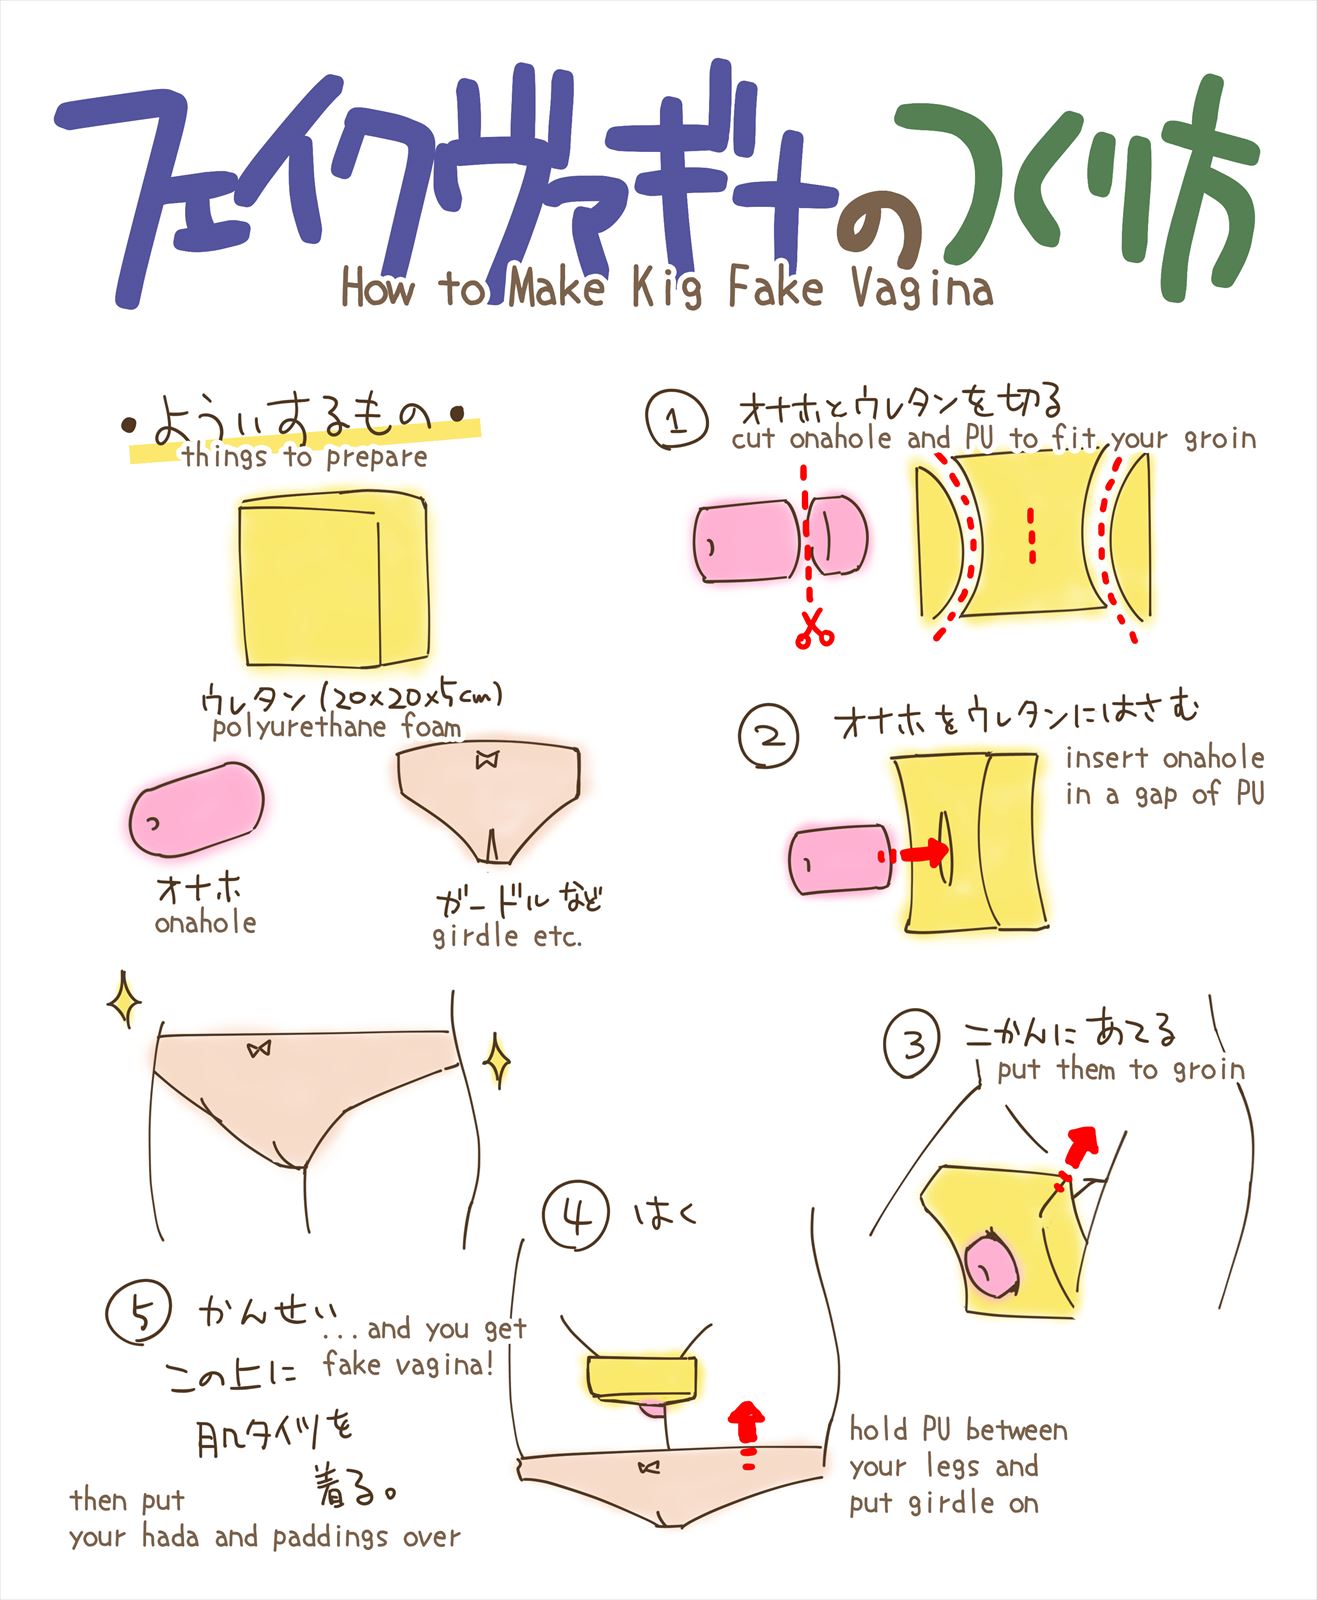 フェイクヴァギナのつくり方
How to Make Kig Fake Vagina
•よういするもの•
things to prepare
ウレタン(20×20×5cm)
polyurethane foam
オナホ
onahole
ガードルなど
girdle etc.
1 オナホとウレタンを切る
cut onahole and PU to fit your groin
2 オナホをウレタンにはさむ
insert onahole
in a gap of PU
3 こかんにあてる
put them to groin
4 はく
hold PU between
your legs and
put girdle on
5 かんせい
...and you get
fake vagina!
この上に
肌タイツを
着る。
then put
your hada and paddings over